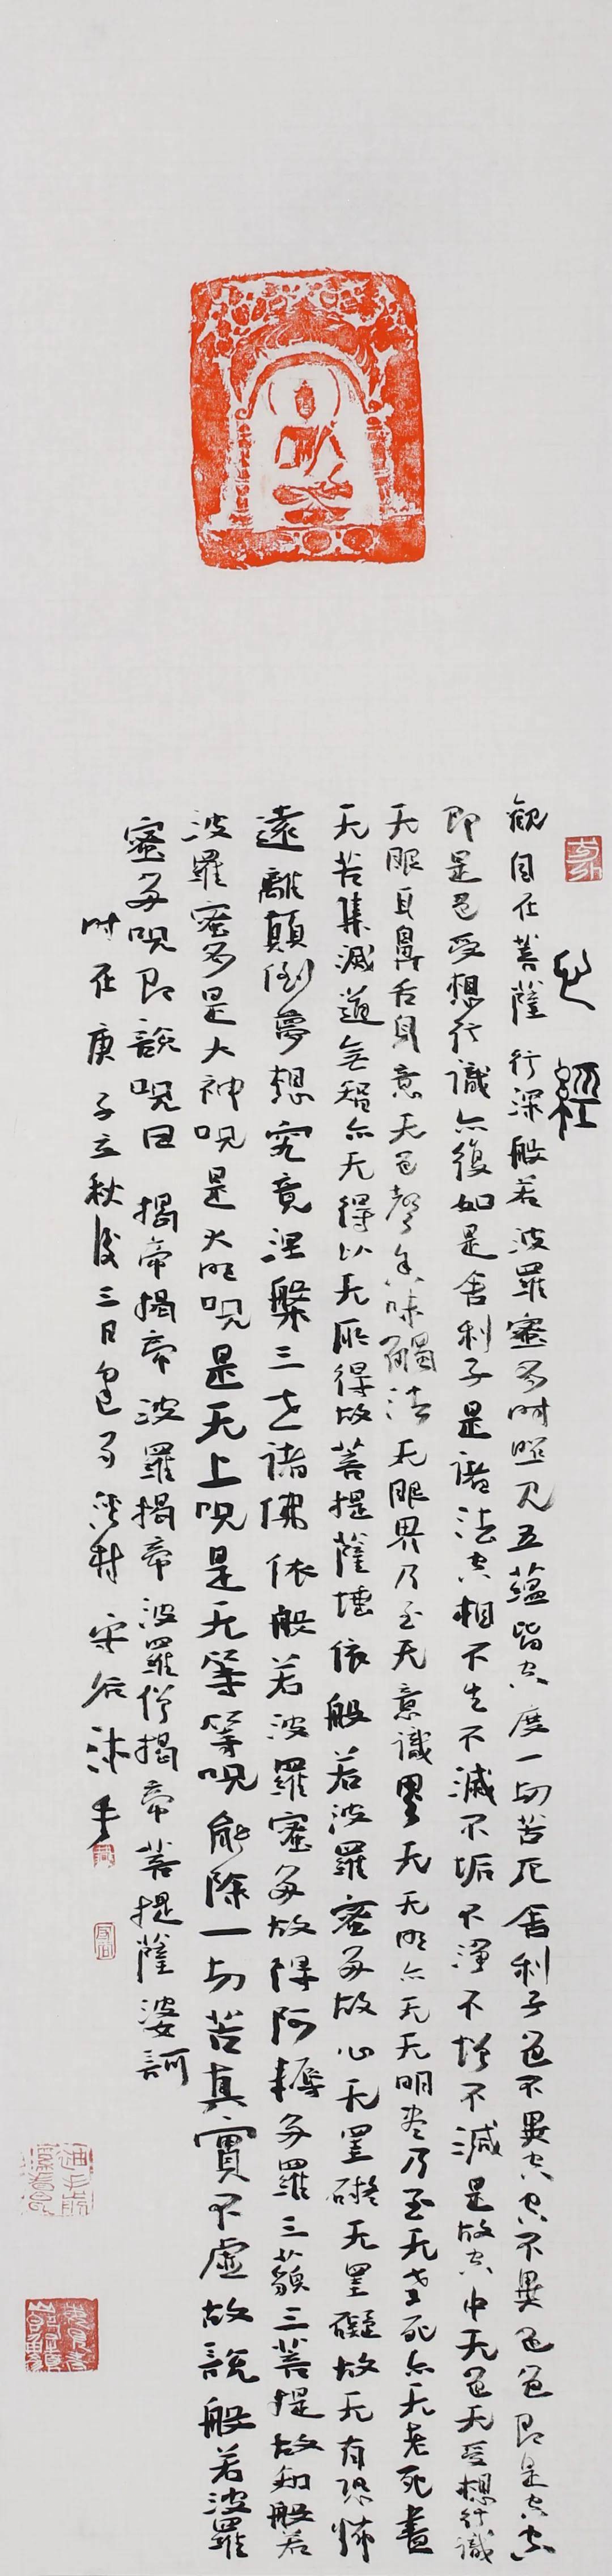 心經
觀自在菩薩行深般若波羅蜜多時照見五蘊皆空度一切苦厄舍利子色不異空空不異色色即是空空
即是色受想行識亦復如是舍利子是諸法空相不生不滅不垢不淨不增不減是故空中无色无受想行識
无眼耳鼻舌身意无色聲香味觸法无眼界乃至无意識界无无明亦无无明盡乃至无老死亦无老死盡
无苦集滅道無智亦无得以无所得故菩提薩埵依般若波羅蜜多故心无罣礙无罣礙故无有恐怖
遠離顛倒夢想究竟涅槃三世諸佛依般若波羅蜜多故得阿耨多羅三藐三菩提故知般若
波羅蜜多是大神呪是大明呪是无上呪是无等等呪能除一切苦真實不虛故說般若波羅
蜜多呪即說呪曰揭帝揭帝波羅揭帝波羅僧揭帝菩提薩婆訶
時在庚子立秋後三日